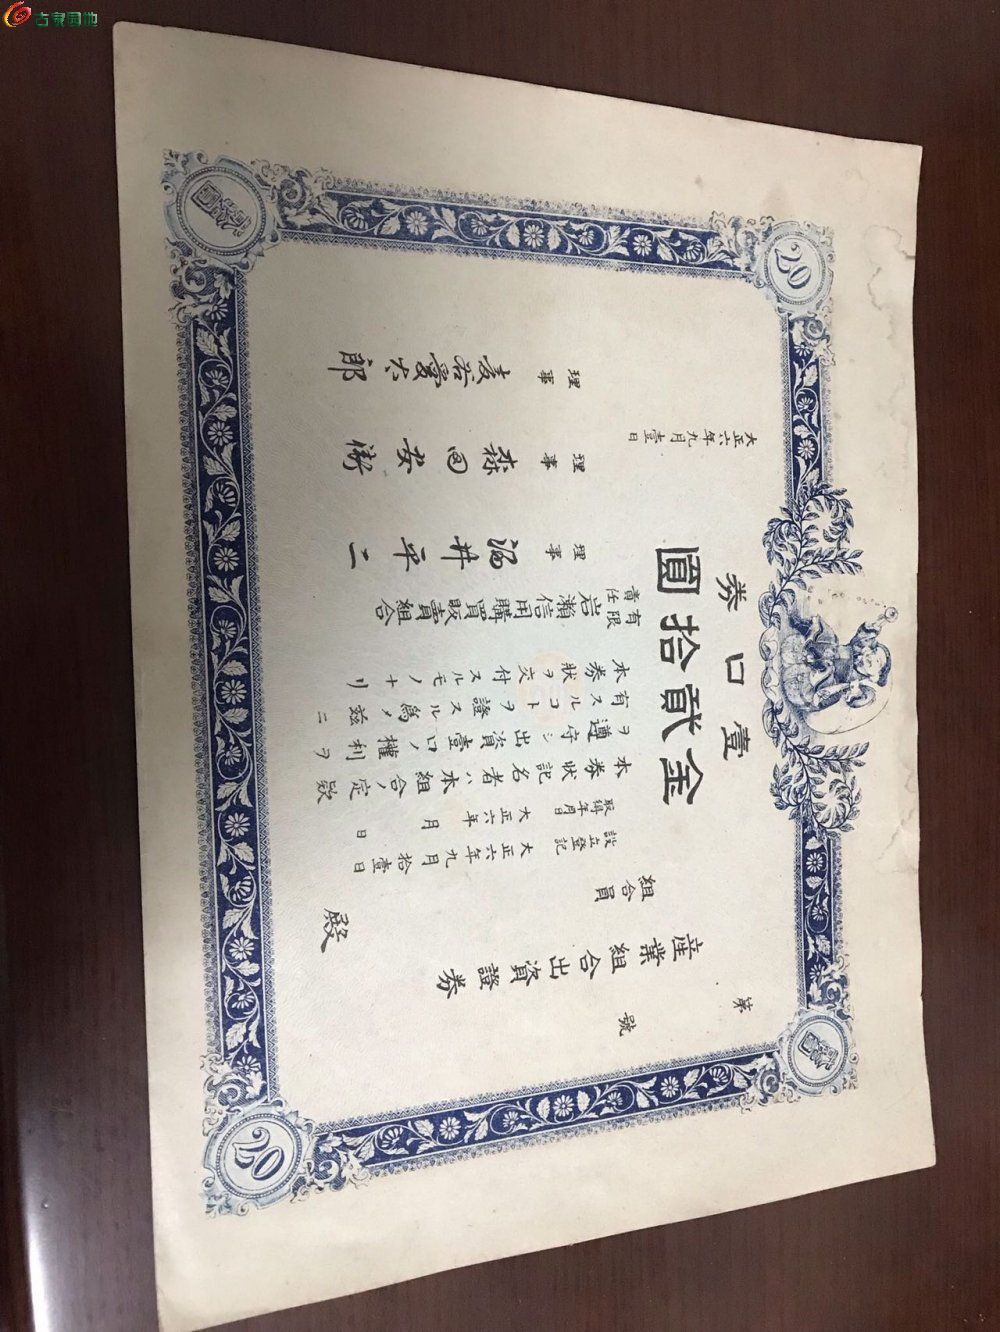 古家园地
壹口券
金貳拾圓
20
20
第 號
産業組合出資證券
組合員 殿
設立登記 大正六年九月拾壹日
取得年月日 大正六年 月 日
本券狀記名者ハ本組合ノ定欵
ヲ遵守シ出資壹口ノ權利ヲ
有スルコトヲ證スル爲メ茲ニ
本券狀ヲ交付スルモノナリ
有限責任 岩瀬信用購買販賣組合
理事 井平二
理事 森田安
理事 谷愛六郎
大正六年九月壹日